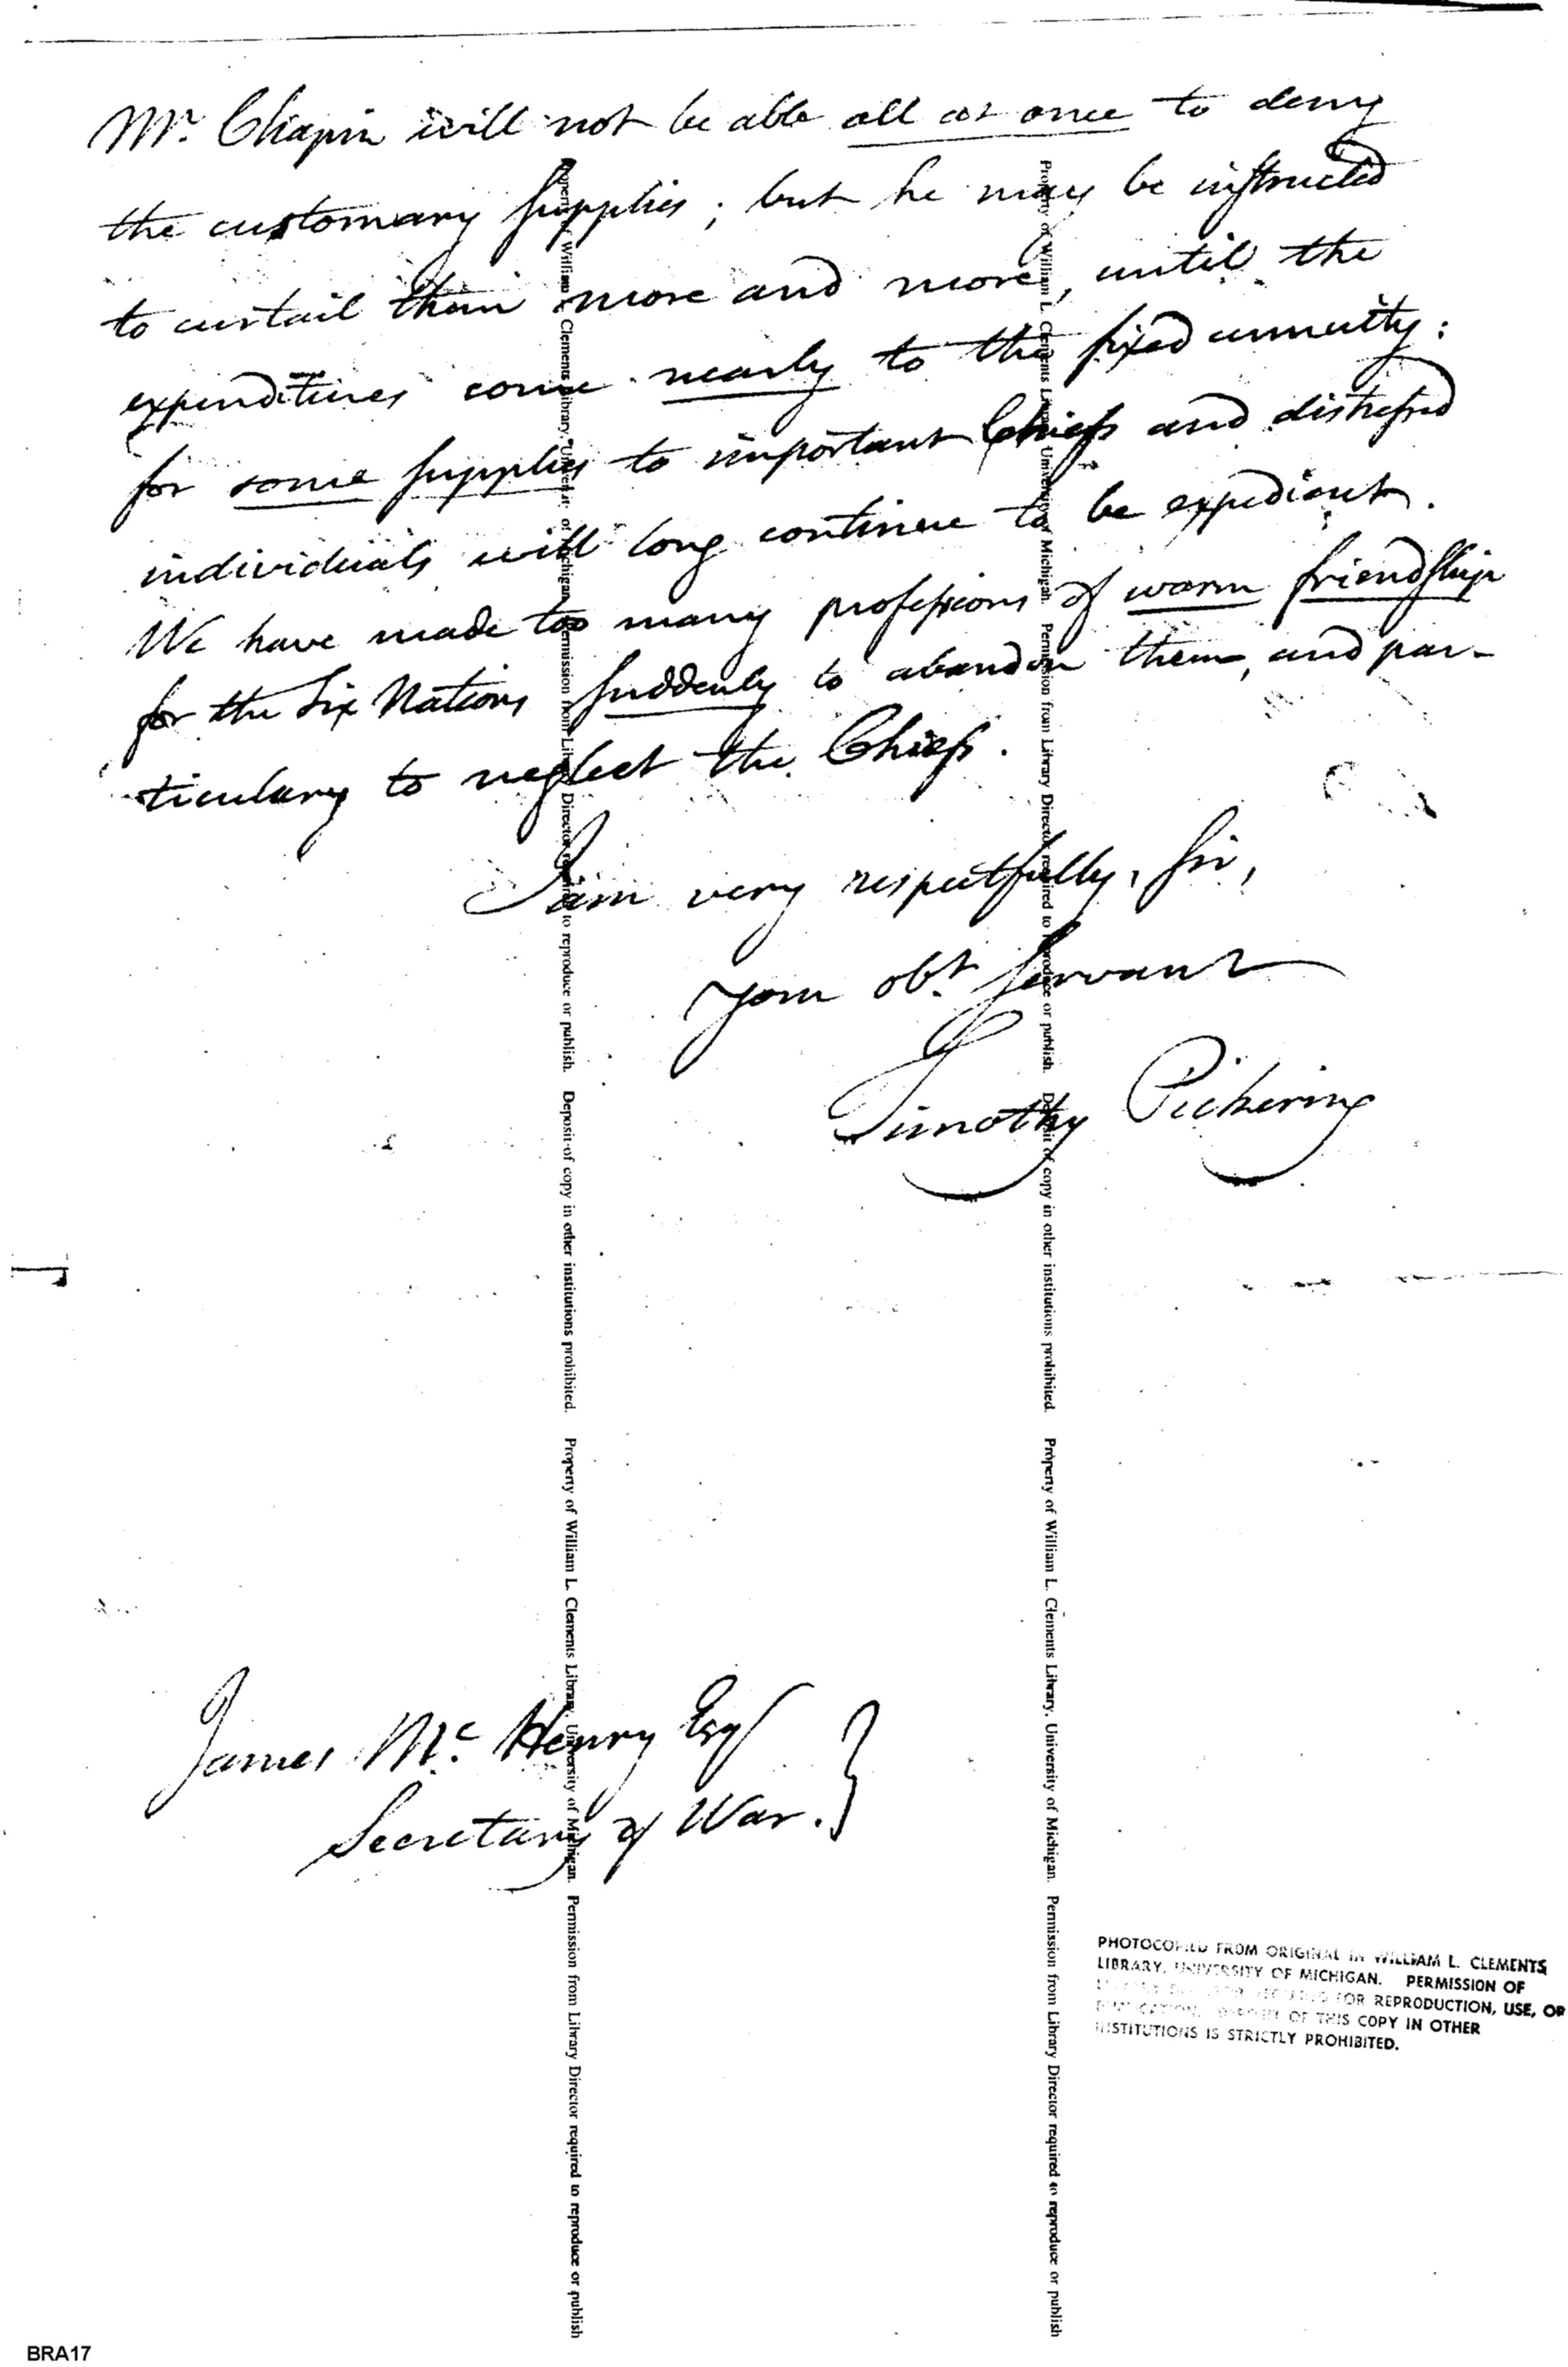 Mr. Chapin will not be able all at once to deny
the customary supplies; but he may be instructed
to curtail them more and more, until the
expenditures come nearly to the fixed annuity:
for some supplies to important Chiefs and distressed
individuals will long continue to be expedient.
We have made too many professions of warm friendship
for the Six Nations suddenly to abandon them, and par-
ticulary to neglect the Chiefs.
I am very respectfully, sir,
your obt. servant
Timothy Pickering
James Mc. Henry Esq
Secretary of War. }
Property of William L. Clements Library, University of Michigan. Permission from Library Director required to reproduce or publish. Deposit of copy in other institutions prohibited. Property of William L. Clements Library, University of Michigan. Permission from Library Director required to reproduce or publish
Property of William L. Clements Library, University of Michigan. Permission from Library Director required to reproduce or publish. Deposit of copy in other institutions prohibited. Property of William L. Clements Library, University of Michigan. Permission from Library Director required to reproduce or publish
PHOTOCOPIED FROM ORIGINAL IN WILLIAM L. CLEMENTS
LIBRARY, UNIVERSITY OF MICHIGAN. PERMISSION OF
FOR REPRODUCTION, USE, OR
OF THIS COPY IN OTHER
INSTITUTIONS IS STRICTLY PROHIBITED.
BRA17